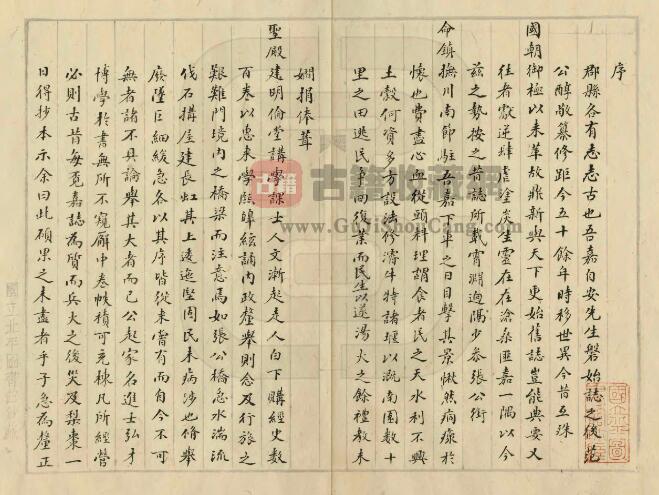 序
郡縣各有志志古也吾嘉自安先生磐始誌之後范
公醇敬纂修距今五十餘年時移世異今昔互殊
國朝御極以來革故鼎新與天下更始舊誌豈能典要又
往者獻逆肆虐塗炭生靈在在滄桑匪嘉一隅以今
茲之勢按之昔誌所載霄淵迥隔少參張公銜
命鎮撫川南節駐吾嘉下車之日目擊其景愀然痌瘝於
懷也費盡心血從頭料理謂食者民之天水利不興
土穀何資多方設法修濬牛特諸堰以溉南園數十
里之田逃民爭回復業而民生以遂湯火之餘禮教未
嫺捐俸葺
聖殿建明倫堂講學課士人文漸起走人白下購經史數
百卷以惠來學膠庠絃誦內政釐舉則念及行旅之
艱難門境內之橋梁而注意焉如張公橋急水湍流
伐石搆屋建長虹其上逶迤堅固民未病涉也脩舉
廢墜巨細緩急各以其序皆從來嘗有而自今不可
無者諸不具論舉其大者而已公起家名進士弘才
博學於書無所不窺廨中卷帙積可充棟凡所經營
必則古昔每覓嘉誌為質而兵火之後災及梨棗一
日得抄本示余曰此碩果之未盡者乎子急為釐正
古籍收藏網
www.GuJiShouCang.com